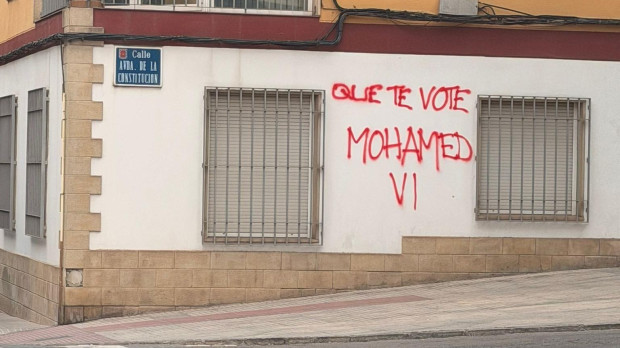 Calle
AVDA. DE LA
CONSTITUCION
QUE TE VOTE
MOHAMED
VI